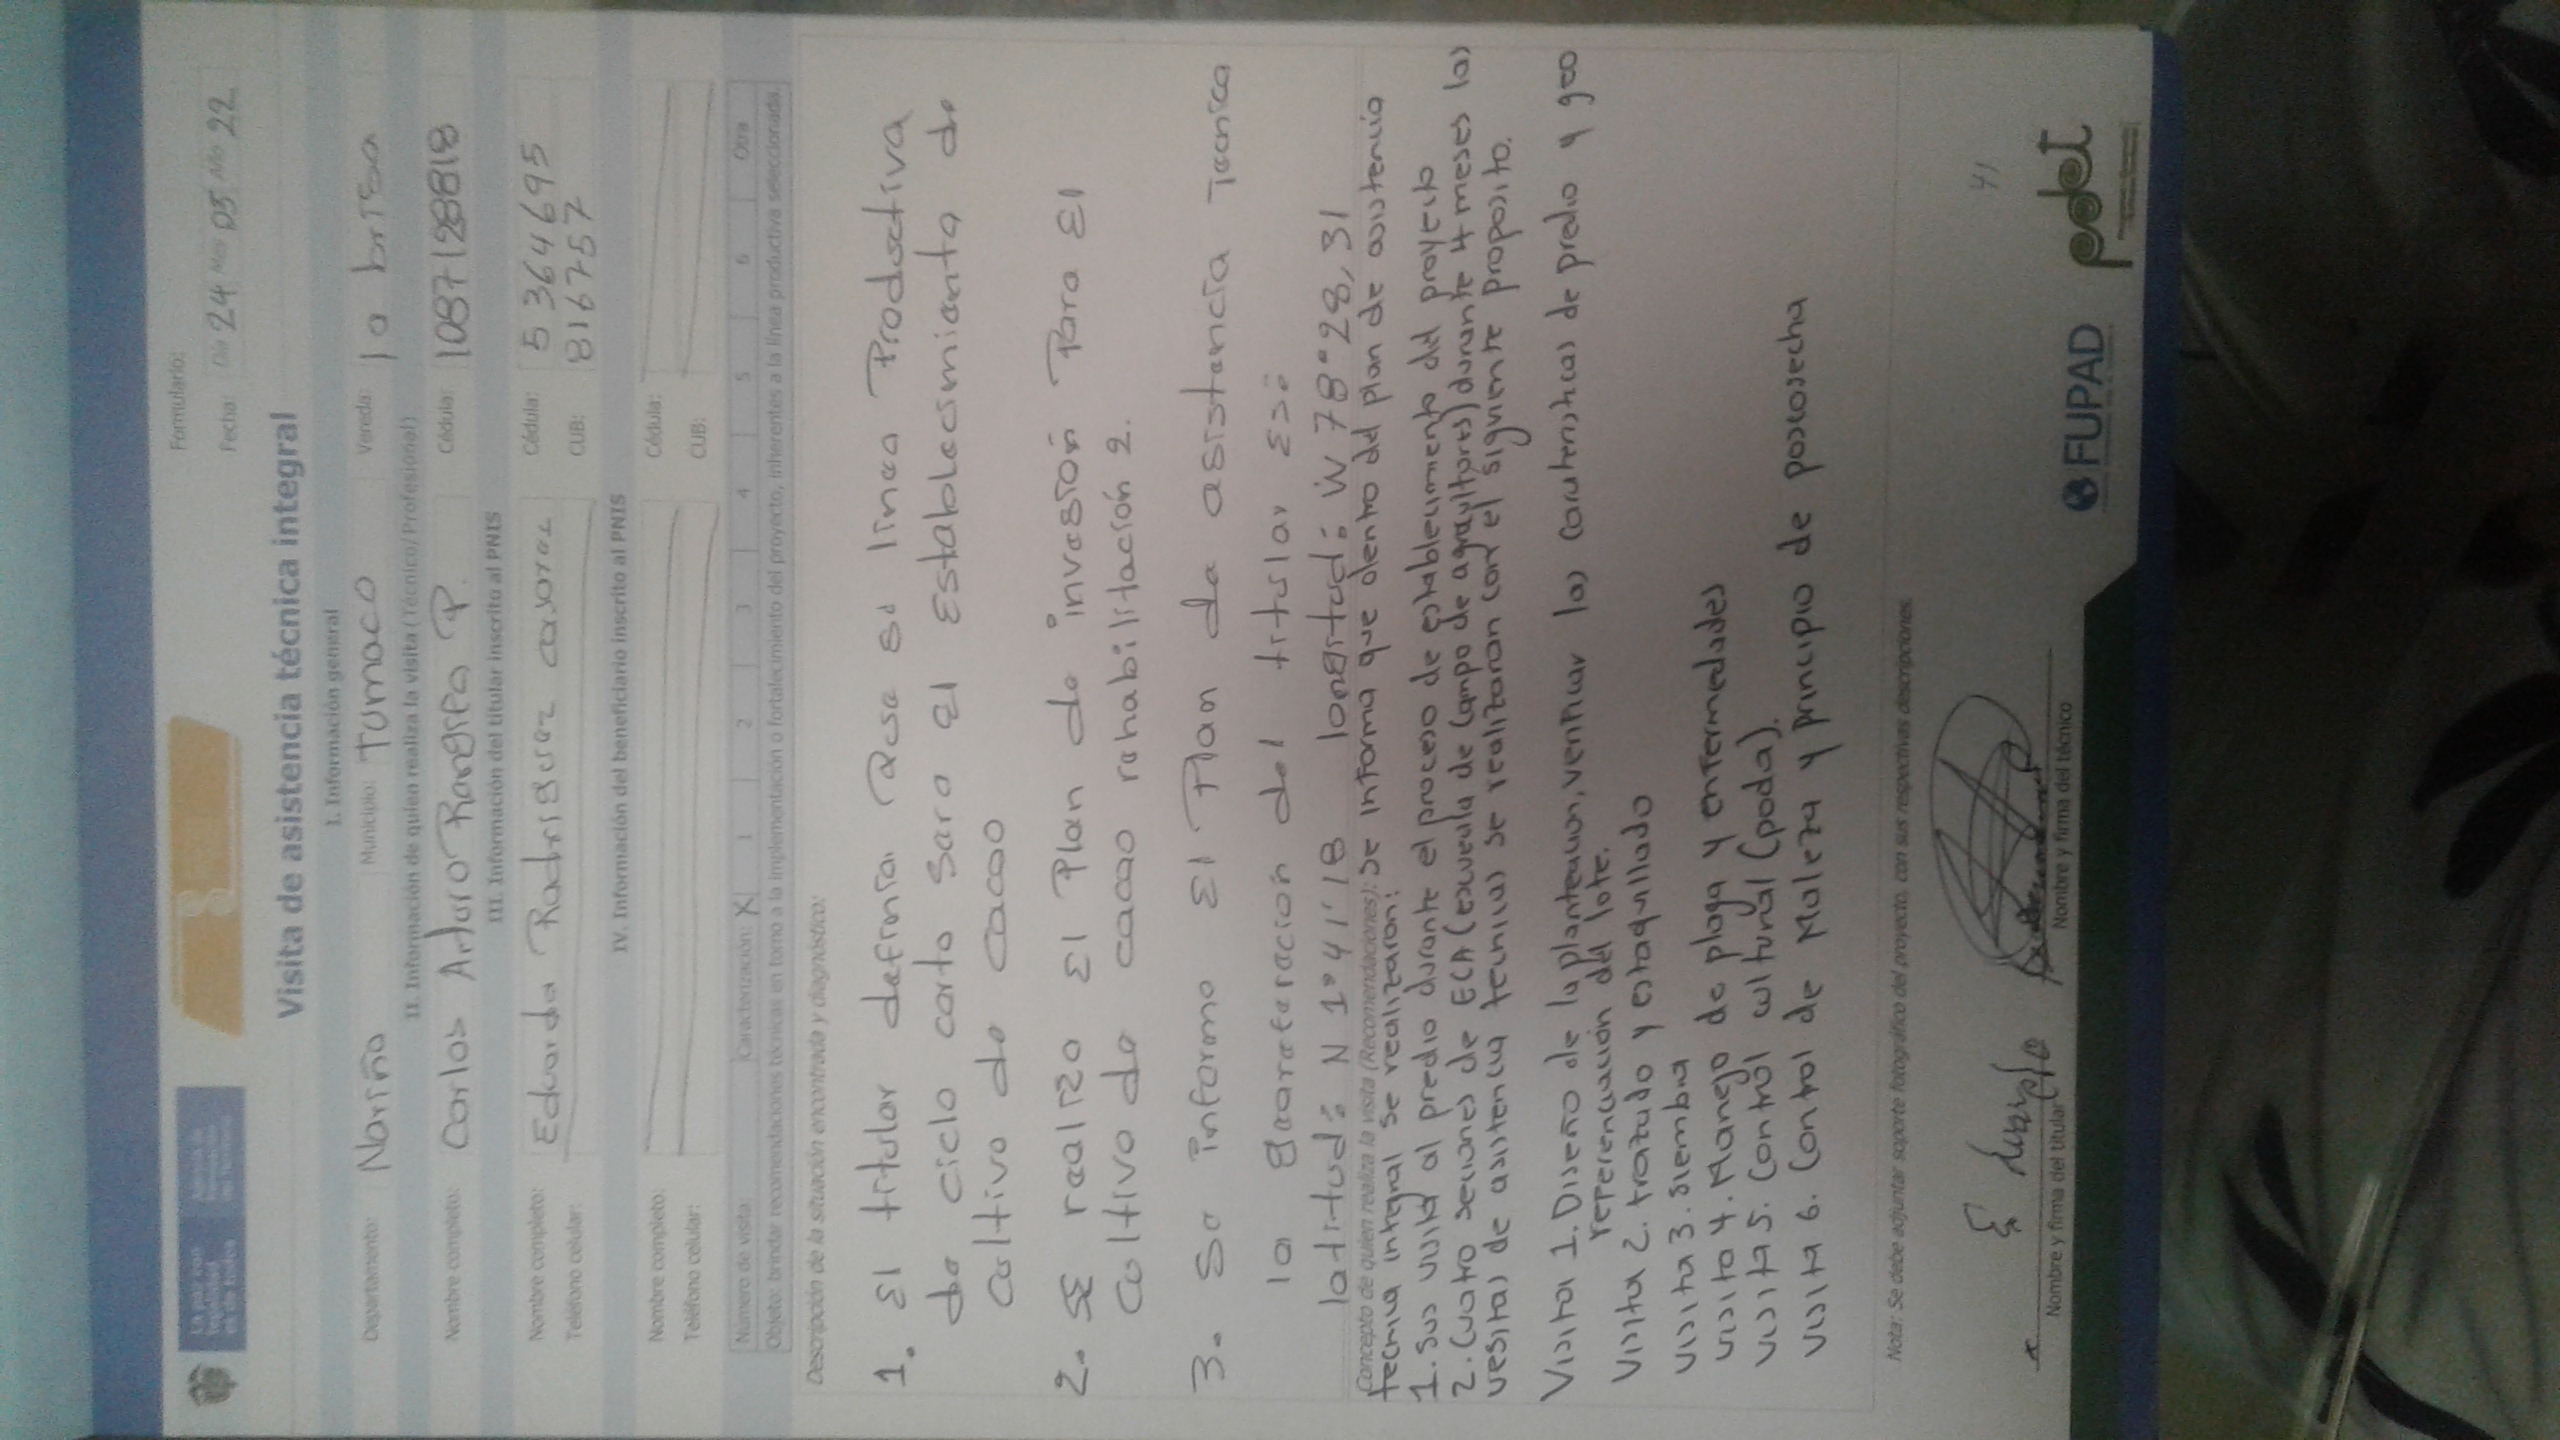 Formulario:
Fecha: Día 24 Mes 05 Año 22
Visita de asistencia técnica integral
I. Información general
Departamento: Nariño Municipio: Tumaco Vereda: la brisa
II. Información de quien realiza la visita (Técnico/ Profesional)
Nombre completo: Carlos Arturo Rangifo P. Cédula: 1087128818
III. Información del titular inscrito al PNIS
Nombre completo: Eduardo Rodriguez Cédula: 5364695
Teléfono celular: CUB: 816757
IV. Información del beneficiario inscrito al PNIS
Nombre completo: Cédula:
Teléfono celular: CUB:
Número de visita: Caracterización: X 1 2 3 4 5 6 Otra
Objeto: brindar recomendaciones técnicas en torno a la implementación o fortalecimiento del proyecto, inherentes a la línea productiva seleccionada.
Descripción de la situación encontrada y diagnóstico:
1. El titular definio que su linea Productiva
de ciclo corto sera el Establecimiento de
Cultivo de cacao
2. SE realizo El Plan de invesión Para El
Cultivo de cacao rehabilitación 2.
3. Se informo El Plan de asistencia Tecnica
la georeferación del titular Es:
latitud: N 1°41'18 longitud: W 78°28,31
Concepto de quien realiza la visita (Recomendaciones): Se informa que dentro del plan de asistencia
tecnica integral se realizaran:
1. Seis visita al predio durante el proceso de establecimiento del proyecto
2. Cuatro seciones de ECA (escuela de campo de agricultores) durante 4 meses las
vesitas de asistencia tecnicas se realizaran con el siguiente proposito.
Visita 1. Diseño de la planteacion, verificar las carateristicas de predio y geo
referenciación del lote.
Visita 2. trazado y estaquillado
Visita 3. Siembra
Visita 4. Manejo de plaga y enfermedades
Visita 5. Control cultural (poda).
Visita 6. Control de Maleza y principio de poscosecha
Nota: Se debe adjuntar soporte fotográfico del proyecto, con sus respectivas descripciones.
41
Nombre y firma del titular Nombre y firma del técnico
FUPAD pdet